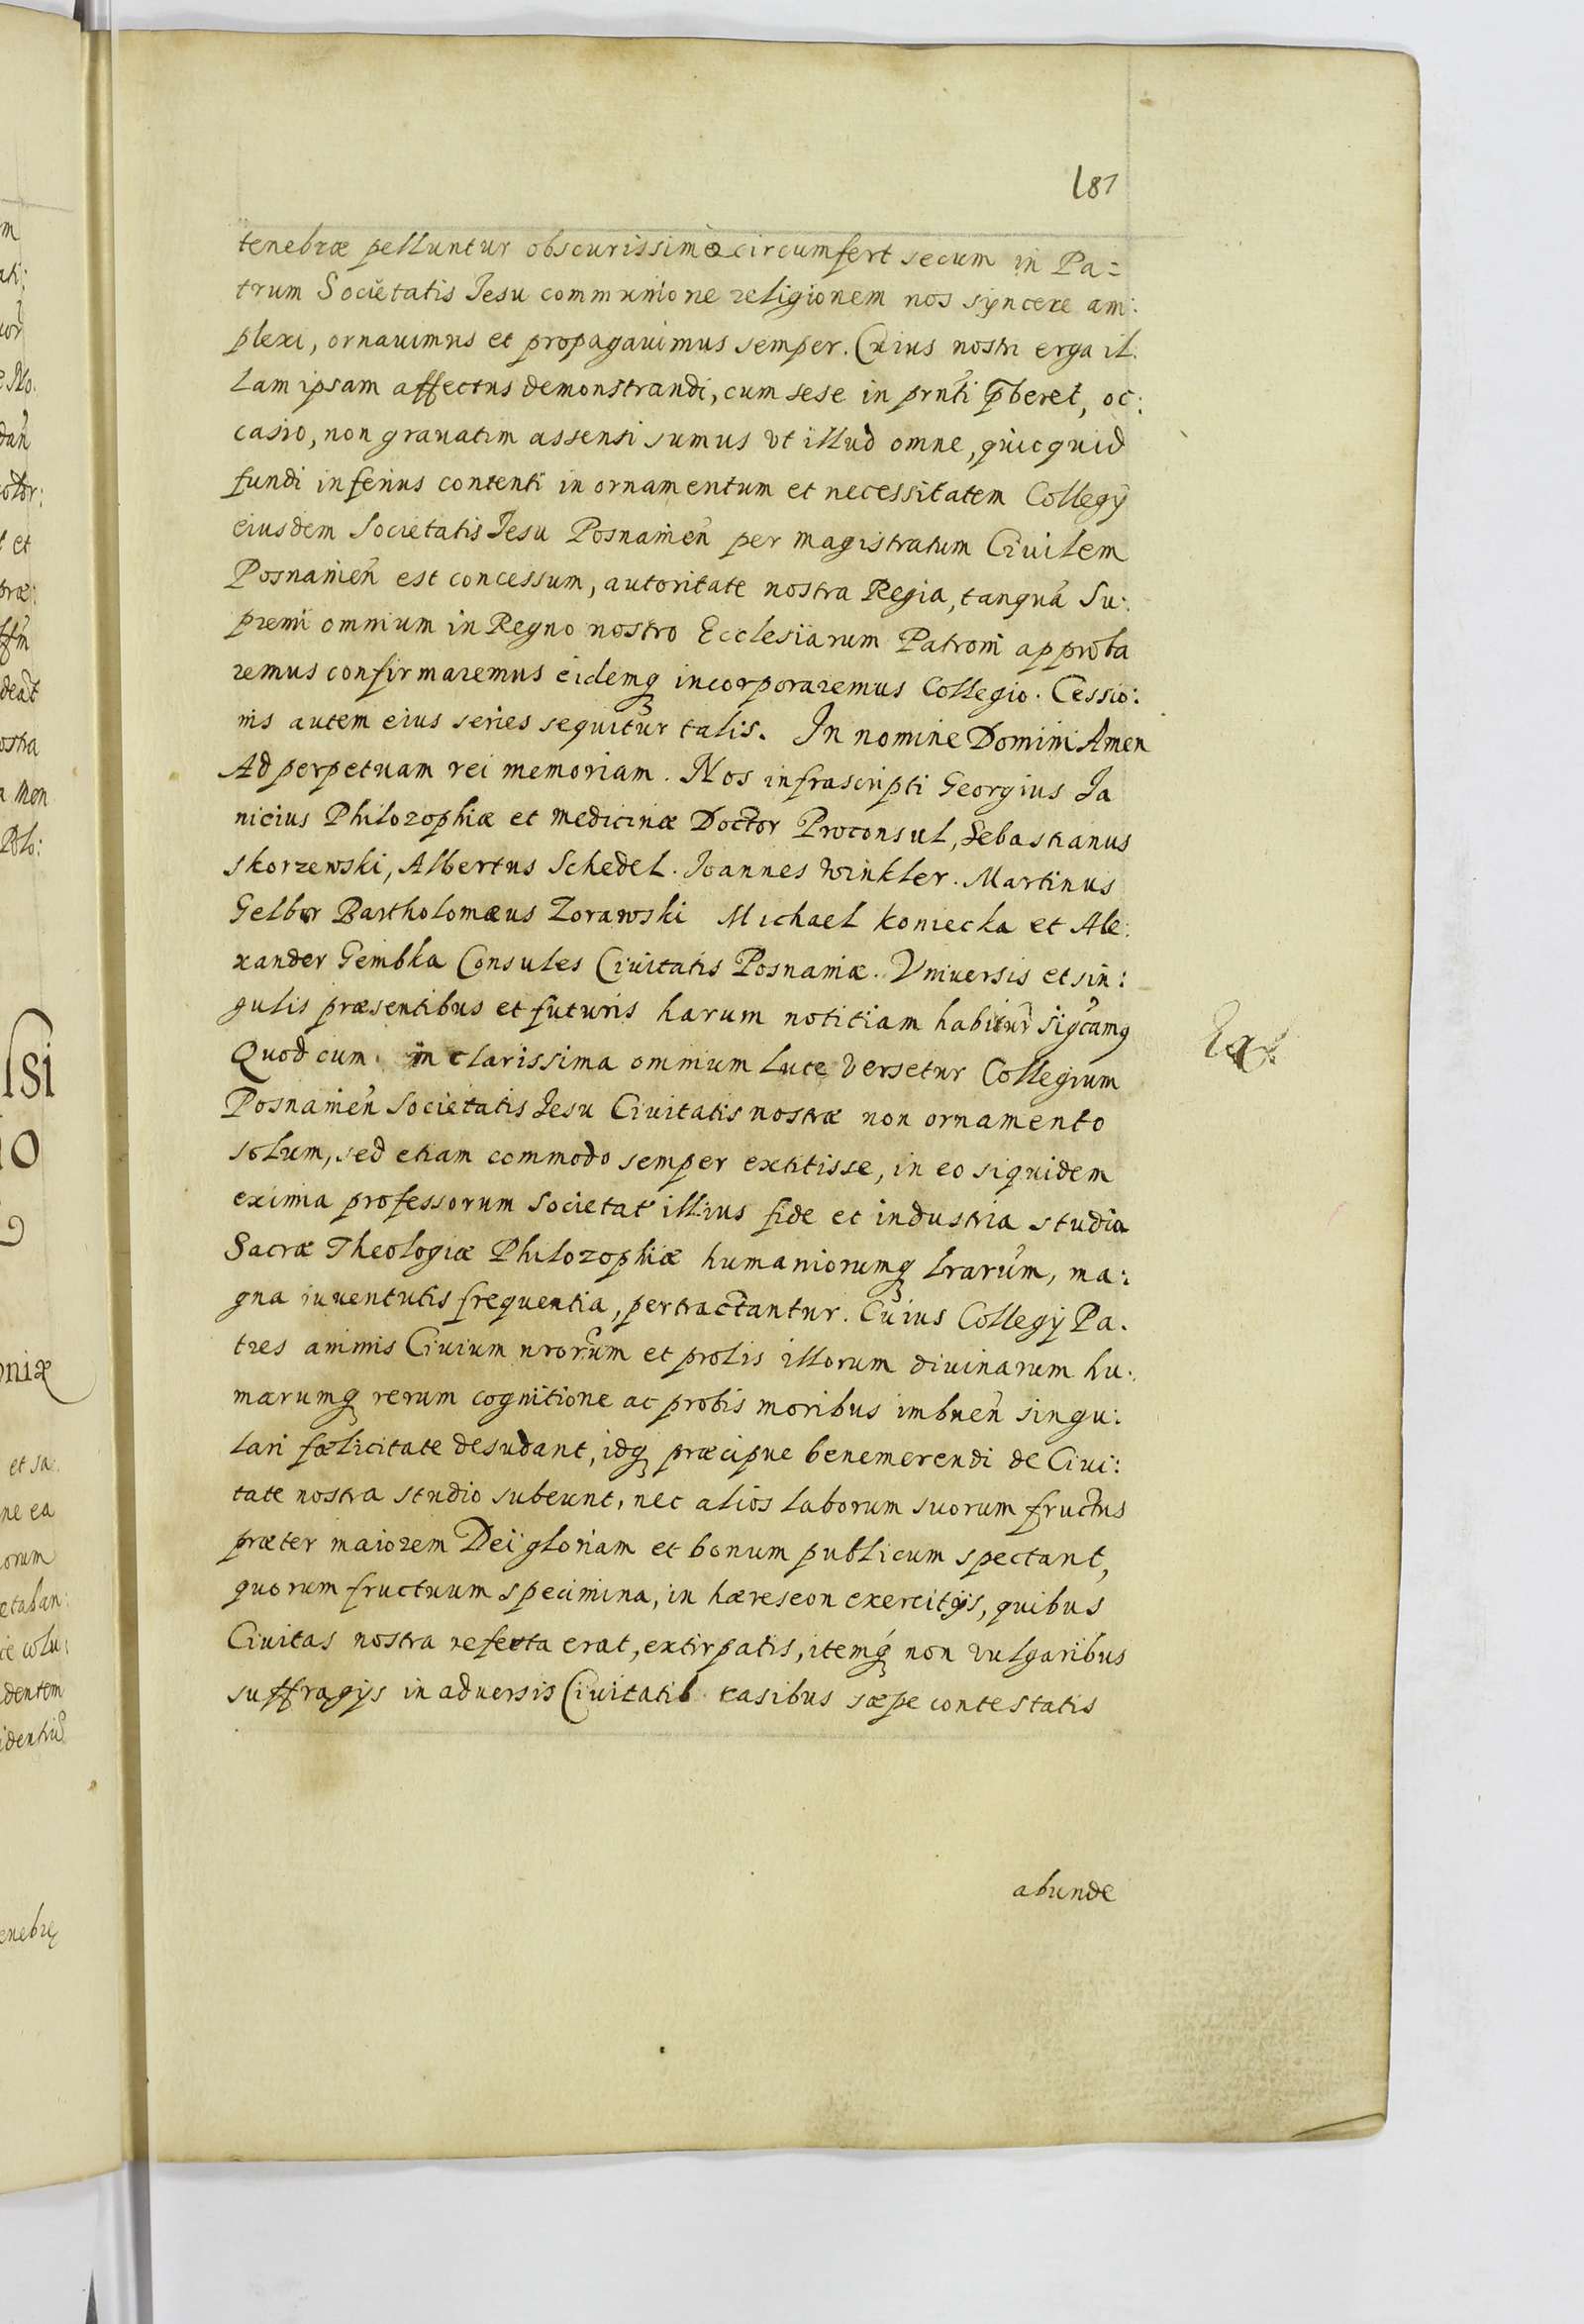 187
tenebræ pelluntur obscurissimæ circumfert secum in Pa=
trum Societatis Jesu communione religionem nos syncere am:
plexi, ornauimus et propagauimus semper. Cuius nostri erga il:
lam ipsam affectus demonstrandi, cum sese in prnti pberet, oc:
casio, non grauatim assensi sumus vt illud omne, quicquid
fundi inferius contenti in ornamentum et necessitatem Collegÿ
eiusdem Societatis Jesu Posnamen̄ per magistratum Ciuilem
Posnanien̄ est concessum, autoritate nostra Regia, tanquā Su:
premi omnium in Regno nostro Ecclesiarum Patroni approba
remus confirmaremus eidemq incorporaremus Collegio. Cessio:
nis autem eius series sequitur talis. In nomine Domini Amen
Ad perpetuam rei memoriam. Nos infrascripti Georgius Ja
nicius Philozophiæ et medicinæ Doctor Proconsul, Sebastianus
Skorzewski, Albertus Schedel. Joannes Winkler. Martinus
Gelbur Bartholomæus Zorawski Michael Koniecka et Ale:
xander Gembka Consules Ciuitatis Posnaniæ. Vniuersis et sin:
gulis præsentibus et futuris harum notitiam habitur̄ sigcamq
Quod cum in clarissima omnium luce versetur Collegium
Posnanien̄ Societatis Jesu Ciuitatis nostræ non ornamento
solum, sed etiam commodo semper extitisse, in eo siquidem
eximia professorum Societat illius fide et industria studia
Sacræ Theologiæ Philozophiæ humaniorumq lrarum, ma:
gna iuuentutis frequentia, pertractantur. Cuius Collegÿ Pa.
tres animis Ciuium nrorum et prolis illorum diuinarum hu:
marumq rerum cognitione ac probis moribus imbuen̄ singu:
lari fœlicitate desudant, idq præcipue benemerendi de Ciui:
tate nostra studio subeunt, nec alios laborum suorum fructus
præter maiorem Dei gloriam et bonum publicum spectant,
quorum fructuum specimina, in hæreseon exercitÿs, quibus
Ciuitas nostra referta erat, extirpatis, itemq non vulgaribus
suffragÿs in aduersis Ciuitatib casibus sæpe contestatis
abunde